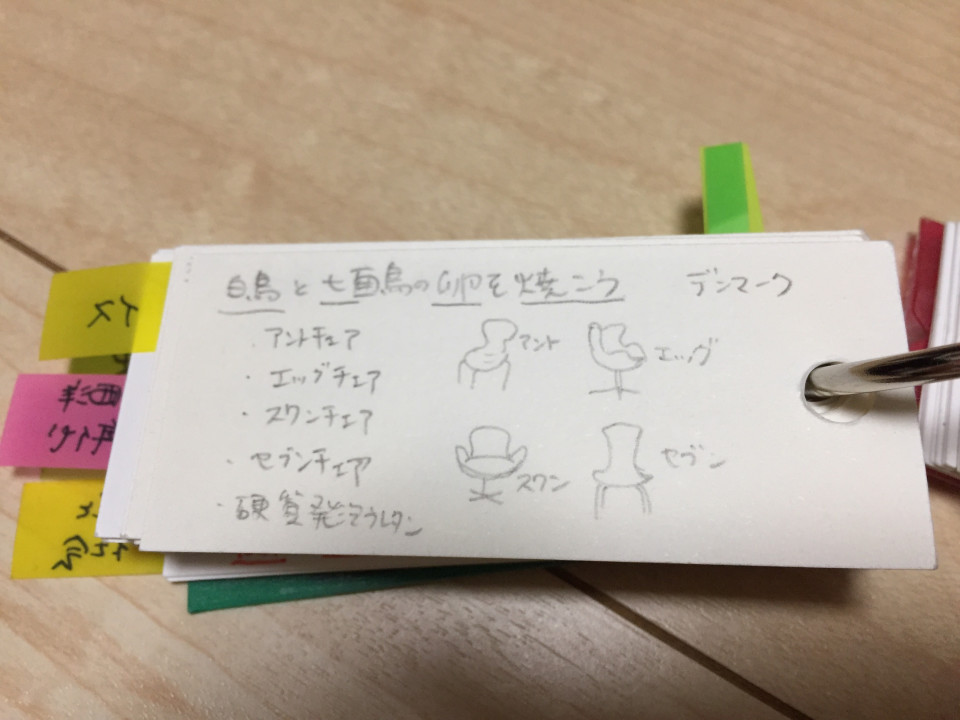 白鳥と七面鳥の卵を焼こう デンマーク
・アントチェア
・エッグチェア
・スワンチェア
・セブンチェア
・硬質発泡ウレタン
アント
エッグ
スワン
セブン
イス